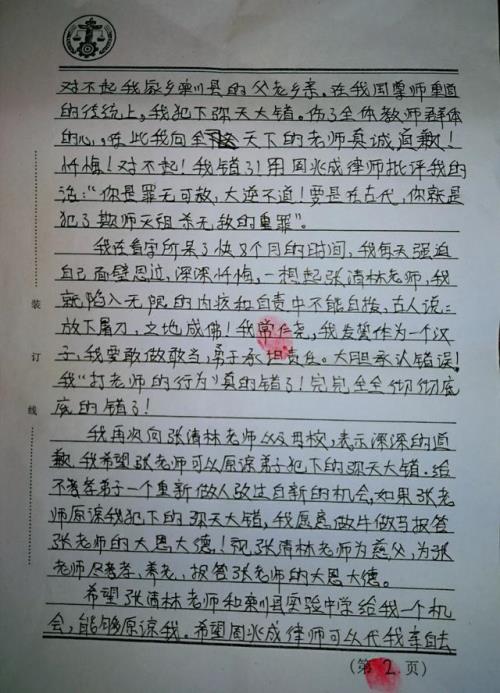 对不起我家乡栾川县的父老乡亲，在我国尊师重道
的传统上，我犯下弥天大错。伤了全体教师群体
的心，在此我向全天下的老师真诚道歉！
忏悔！对不起！我错了！用周兆成律师批评我的
话：“你是罪无可赦，大逆不道！要是在古代，你就是
犯了欺师灭祖杀无赦的重罪”。
我在看守所呆了快8个月的时间，我每天强迫
自己面壁思过，深深忏悔，一想起张清林老师，我
就陷入无限的内疚和自责中不能自拔，古人说：
放下屠刀，立地成佛！我常仁尧，我发誓作为一个汉
子，我要敢做敢当，勇于承担责任。大胆承认错误！
我“打老师的行为”真的错了！完完全全彻彻底
底的错了！
我再次向张清林老师以及母校，表示深深的道
歉，我希望张老师可以原谅弟子犯下的弥天大错。给
不孝弟子一个重新做人改过自新的机会，如果张老
师原谅我犯下的弥天大错，我愿意做牛做马报答
张老师的大恩大德！视张清林老师为慈父，为张
老师尽孝、养老、报答张老师的大恩大德。
希望张清林老师和栾川县实验中学给我一个机
会，能够原谅我。希望周兆成律师可以代我亲自去
(第2页)
装
订
线